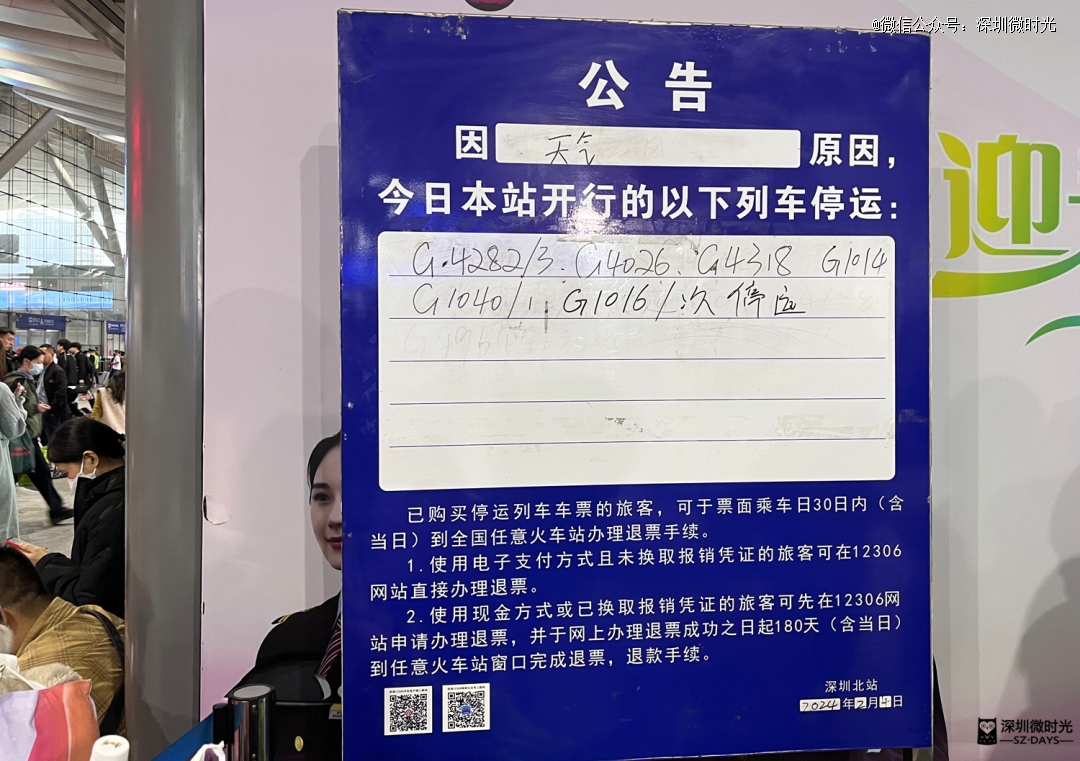 @微信公众号：深圳微时光
公告
因 天气 原因，
今日本站开行的以下列车停运：
G4282/3、G4026、G4318 G1014
G1040/1、G1016/次停运
已购买停运列车车票的旅客，可于票面乘车日30日内（含
当日）到全国任意火车站办理退票手续。
1.使用电子支付方式且未换取报销凭证的旅客可在12306
网站直接办理退票。
2.使用现金方式或已换取报销凭证的旅客可先在12306网
站申请办理退票，并于网上办理退票成功之日起180天（含当日）
到任意火车站窗口完成退票，退款手续。
深圳北站
2024年2月 日
迎
深圳微时光
SZ-DAYS